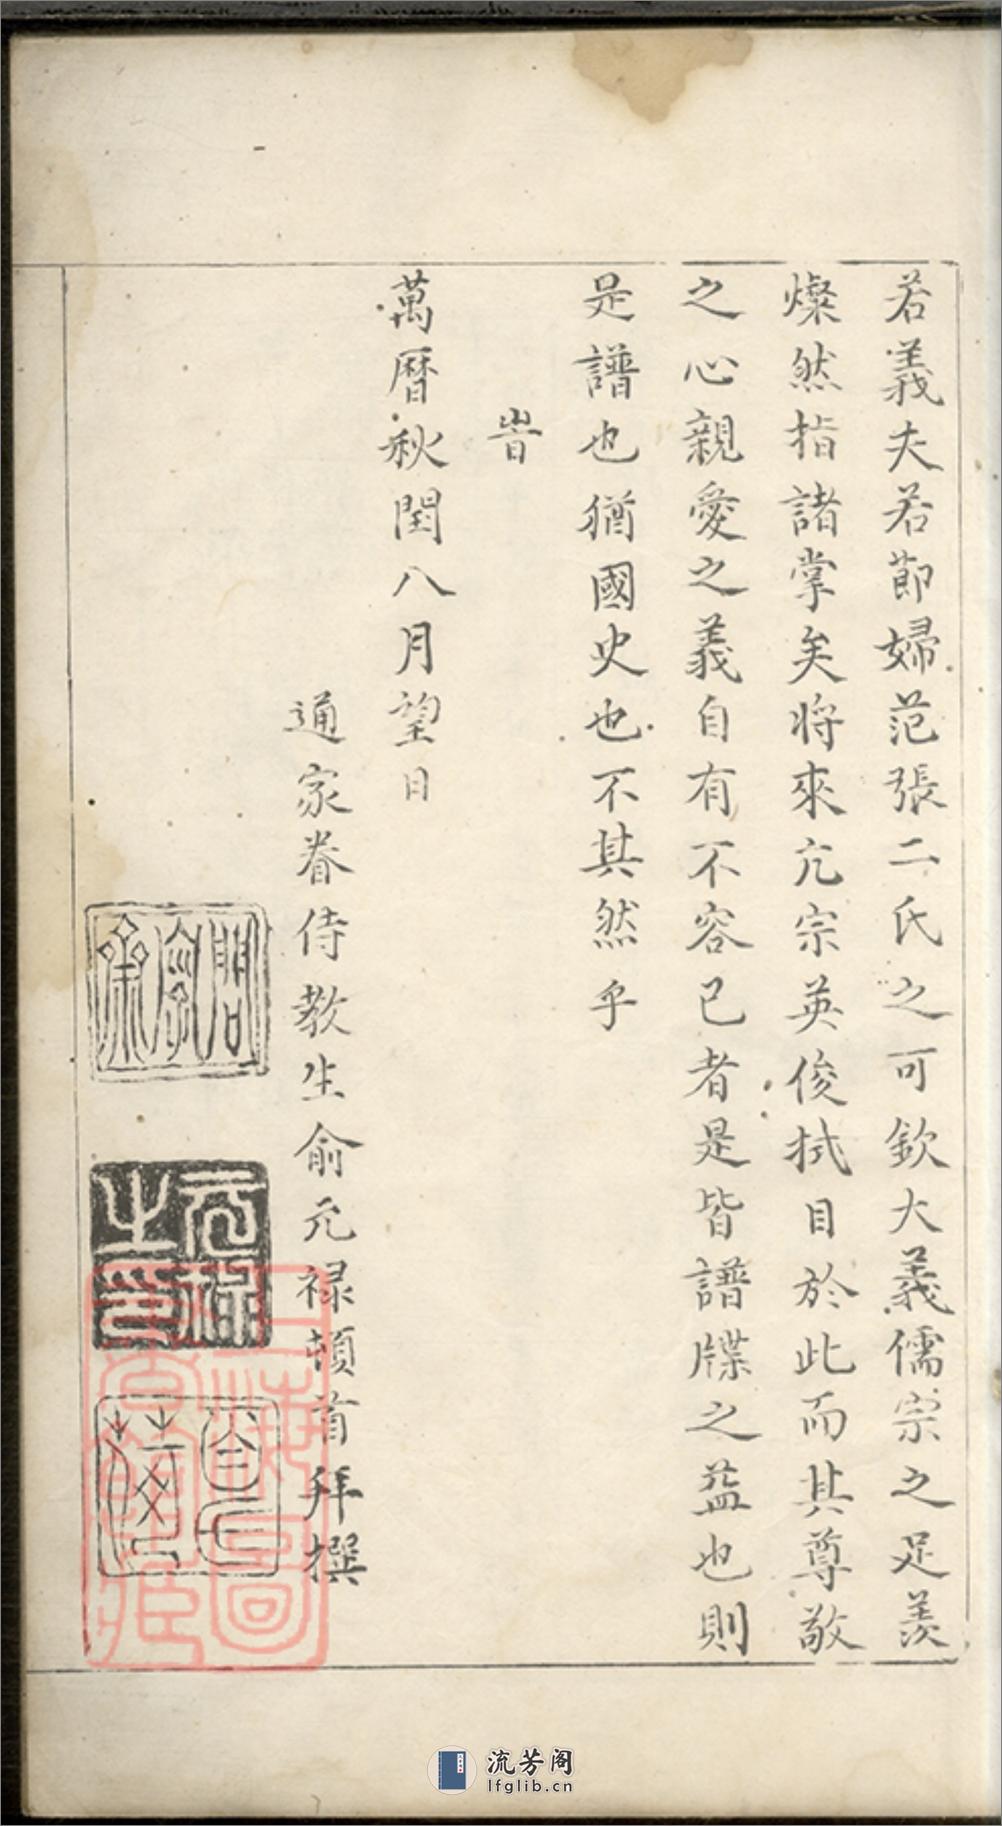 若義夫若節婦范張二氏之可欽大義儒宗之足羨
燦然指諸掌矣將來亢宗英俊拭目於此而其尊敬
之心親愛之義自有不容已者是皆譜牒之益也則
是譜也猶國史也不其然乎
旹
萬曆秋閏八月望日
通家眷侍教生俞元禄頓首拜撰
元禄之印
流芳阁
lfglib.cn